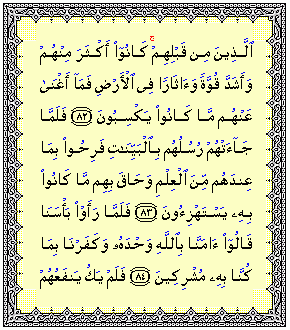 ٱلَّذِينَ مِن قَبْلِهِمْ ۚ كَانُوٓا۟ أَكْثَرَ مِنْهُمْ
وَأَشَدَّ قُوَّةً وَءَاثَارًا فِى ٱلْأَرْضِ فَمَآ أَغْنَىٰ
عَنْهُم مَّا كَانُوا۟ يَكْسِبُونَ ﴿٨٢﴾ فَلَمَّا
جَآءَتْهُمْ رُسُلُهُم بِٱلْبَيِّنَـٰتِ فَرِحُوا۟ بِمَا
عِندَهُم مِّنَ ٱلْعِلْمِ وَحَاقَ بِهِم مَّا كَانُوا۟
بِهِۦ يَسْتَهْزِءُونَ ﴿٨٣﴾ فَلَمَّا رَأَوْا۟ بَأْسَنَا
قَالُوٓا۟ ءَامَنَّا بِٱللَّهِ وَحْدَهُۥ وَكَفَرْنَا بِمَا
كُنَّا بِهِۦ مُشْرِكِينَ ﴿٨٤﴾ فَلَمْ يَكُ يَنفَعُهُمْ